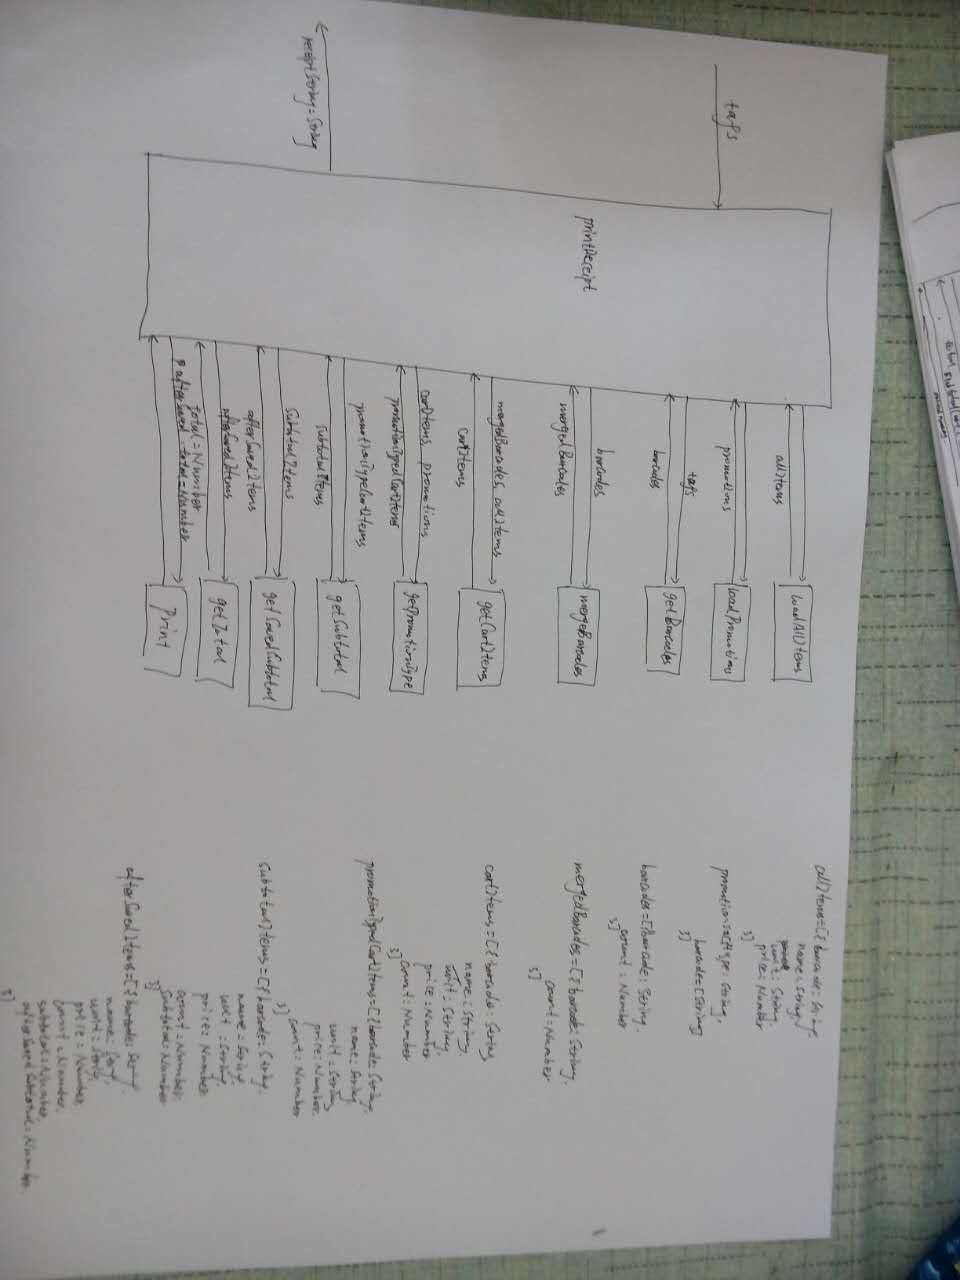 tags
receiptString: String
printReceipt
allItems
loadAllItems
promotions
loadPromotions
tags
barcodes
getBarcodes
barcodes
mergedBarcodes
mergeBarcodes
mergedBarcodes, allItems
cartItems
getCartItems
cartItems promotions
promotionTypedCartItems
getPromotionType
promotionTypeCartItems
subtotalItems
getSubtotal
subtotalItems
afterSavedItems
getSavedSubtotal
afterSavedItems
total=Number
getTotal
total=Number
Print
allItems=[{barcode: String,
name: String,
unit: String,
price: Number
}]
type: String,
barcode=[String]
}]
barcode: String,
count: Number
}]
mergedBarcodes=[{barcode: String,
count: Number
}]
cartItems=[{barcode: String,
name: String,
unit: String,
price: Number,
count: Number
}]
promotionTypedCartItems=[{barcode: String,
name: String,
unit: String,
price: Number,
count: Number
}]
subtotalItems=[{barcode: String,
name: String,
unit: String,
price: Number,
count: Number,
subtotal: Number
}]
afterSavedItems=[{barcode: String,
name: String,
unit: String,
price: Number,
count: Number,
subtotal: Number,
afterSavedSubtotal: Number
}]